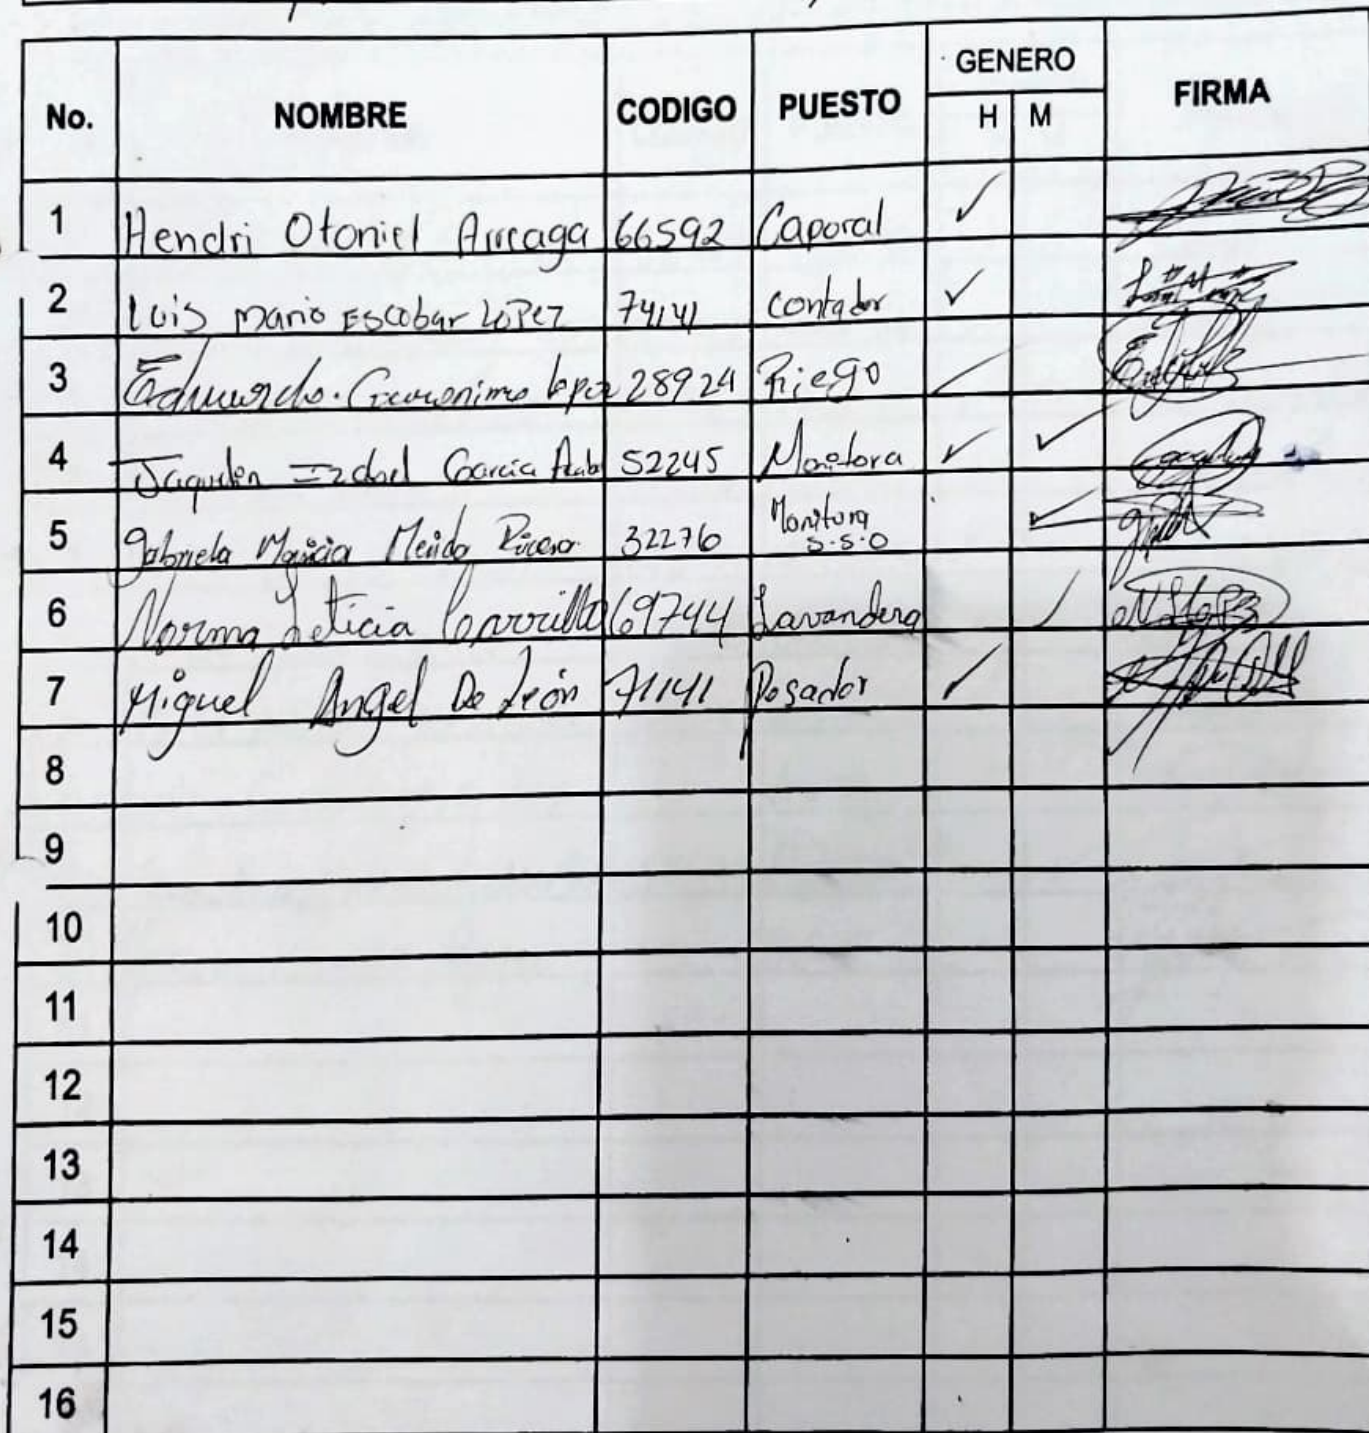 No. NOMBRE CODIGO PUESTO GENERO H M FIRMA
1 Hendri Otoniel Arreaga 66592 Caporal ✓
2 Luis Mario Escobar Lopez 74141 contador ✓
3 Eduardo. Geronimo lopez 28924 Riego
4 Garcia 52245 Monitora ✓ ✓
5 Gabriela 32276 Monitora S.S.O ✓
6 Norma Leticia Carrillo 69744 Lavandera
7 Miguel Angel De León 71141 Pesador ✓
8
9
10
11
12
13
14
15
16